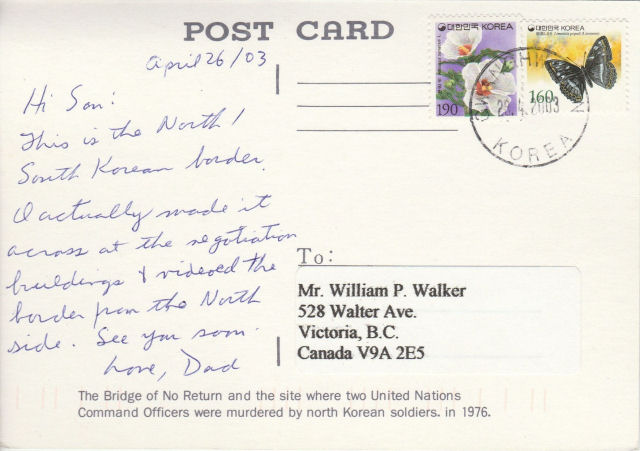 POST CARD
대한민국 KOREA
대한민국 KOREA
190
160
KOREA
April 26/03
Hi Son!
This is the North/
South Korean border.
I actually made it
across at the negotiation
buildings & videoed the
border from the North
side. See you soon.
Love, Dad
To:
Mr. William P. Walker
528 Walter Ave.
Victoria, B.C.
Canada V9A 2E5
The Bridge of No Return and the site where two United Nations
Command Officers were murdered by north Korean soldiers. in 1976.